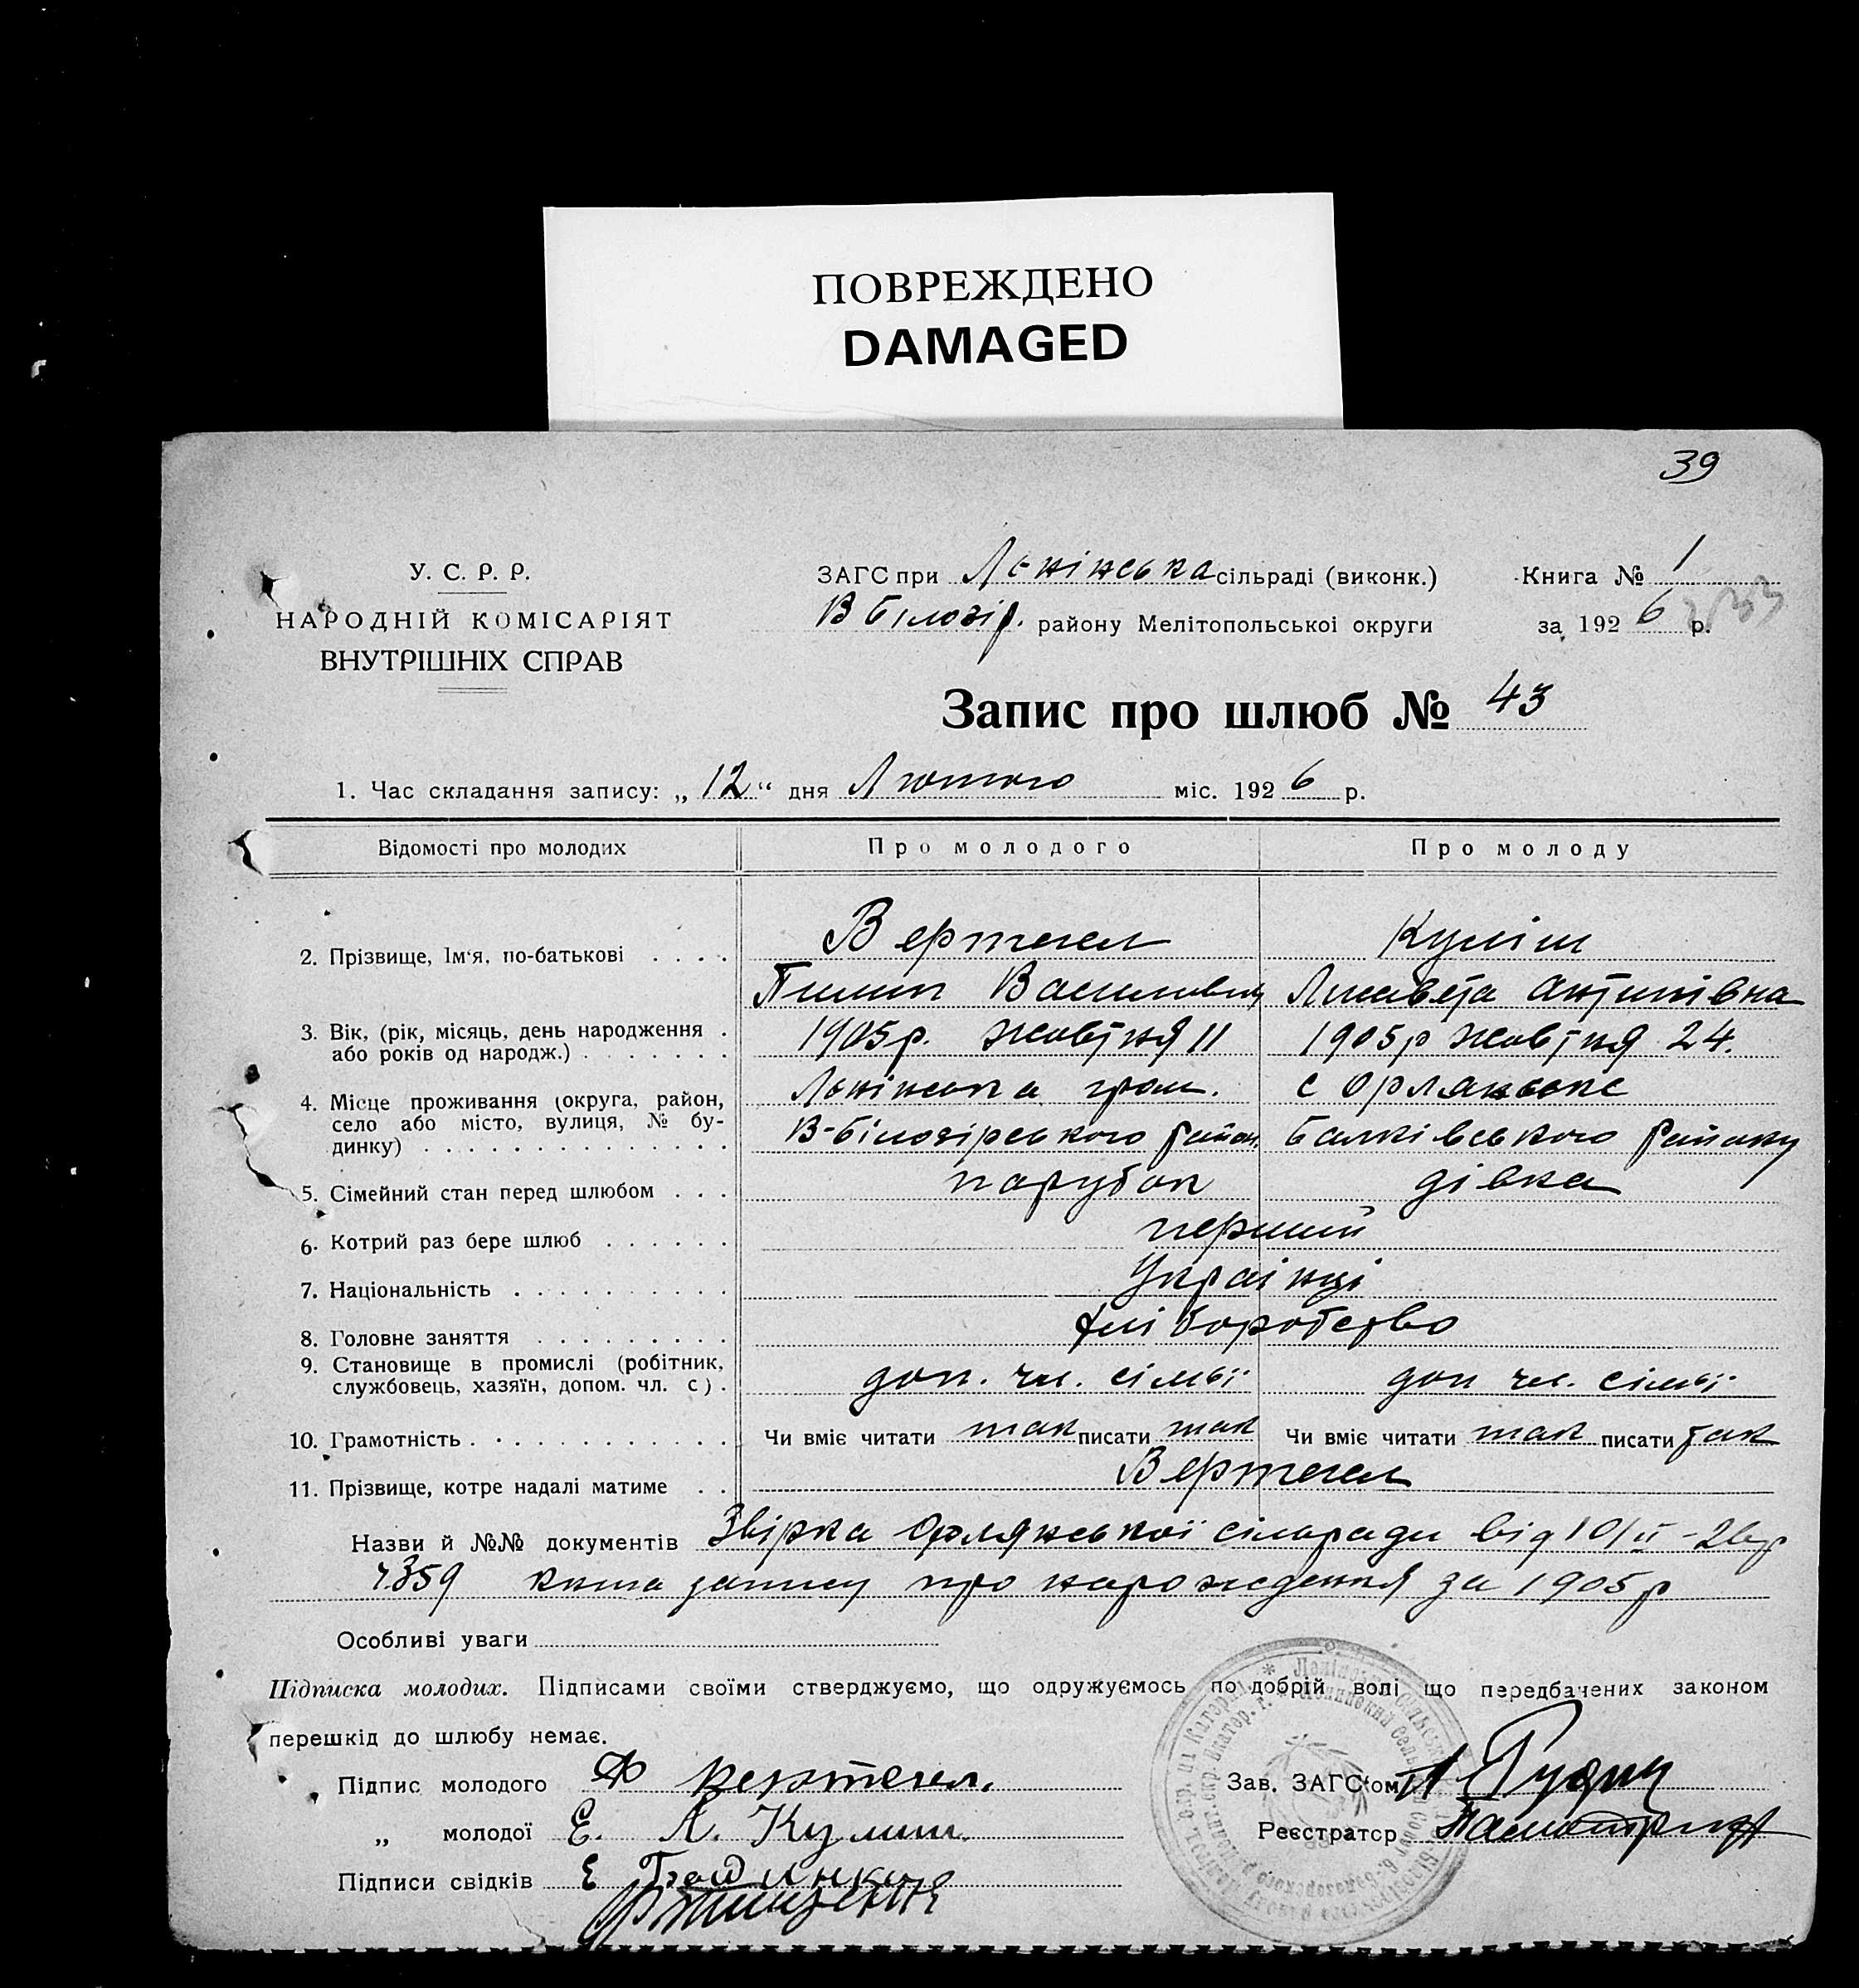 ПОВРЕЖДЕНО
DAMAGED
39
У. С. Р. Р.
НАРОДНІЙ КОМІСАРІЯТ
ВНУТРІШНІХ СПРАВ
ЗАГС при Лєнінська сільраді (виконк.)
В Білозір. району Мелітопольської округи
Книга № 1
за 1926 р.
Запис про шлюб № 43
1. Час складання запису: „12“ дня Лютого міс. 1926 р.
Відомості про молодих Про молодого Про молоду
2. Прізвище, Ім‘я, по-батькові Вертегел Куліш
Пилип Василович Лисавета Антипівна
3. Вік, (рік, місяць, день народження або років од народж.) 1905р. жовтня 11 1905р жовтня 24.
4. Місце проживання (округа, район, село або місто, вулиця, № будинку) Лєнінська гром. с Орлянське
В-Білозірського район. Балківського району
5. Сімейний стан перед шлюбом парубок дівка
6. Котрий раз бере шлюб перший
7. Національність Українці
8. Головне заняття хліборобство
9. Становище в промислі (робітник, службовець, хазяїн, допом. чл. с). доп. чл. сімьї доп чл. сімьї
10. Грамотність Чи вміє читати так писати так Чи вміє читати так писати так
11. Прізвище, котре надалі матиме Вертегел
Назви й №№ документів Звірка Орлянської сільради від 10/II-26р
359 книга запису про нарождення за 1905р
Особливі уваги
Підписка молодих. Підписами своїми стверджуємо, що одружуємось по добрій волі що передбачених законом
перешкід до шлюбу немає.
Підпис молодого Ф Вертегел.
„ молодої Е. А. Кулиш.
Підписи свідків Е
Зав. ЗАГС‘ом
Реєстратор